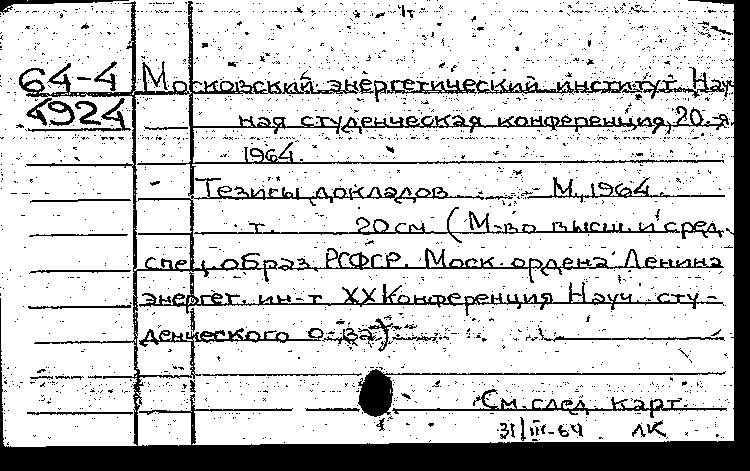 64-4 Московский энергетический институт. Науч
4924 ная студенческая конференция, 20-я.
1964.
Тезисы докладов М., 1964.
т. 20 см. (М-во высш. и сред.
спец. образ. РСФСР. Моск. ордена Ленина
энергет. ин-т. XX Конференция Науч. сту-
денческого о-ва)
См. след. карт.
31/III-64 ЛК